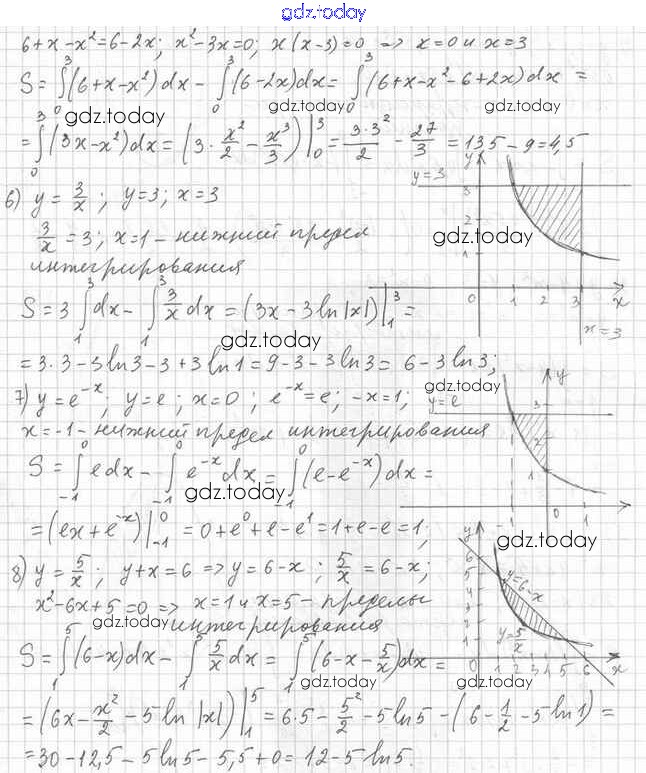 gdz.today
6+x-x²=6-2x; x²-3x=0; x(x-3)=0 => x=0 и x=3
S=∫₀³(6+x-x²)dx-∫₀³(6-2x)dx=∫₀³(6+x-x²-6+2x)dx=
gdz.today gdz.today
=∫₀³(3x-x²)dx=(3·x²/2-x³/3)|₀³=3·3²/2-27/3=13,5-9=4,5
6) y=3/x; y=3; x=3
3/x=3; x=1-нижний предел
интегрирования
y=3
y
3
2
1
0 1 2 3 x
x=3
gdz.today
S=3∫₁³dx-∫₁³3/x dx=(3x-3ln|x|)|₁³=
gdz.today
=3·3-3ln3-3+3ln1=9-3-3ln3=6-3ln3;
7) y=e⁻ˣ; y=e; x=0; e⁻ˣ=e; -x=1;
x=-1-нижний предел интегрирования
gdz.today
y=e
y
3
2
1
-1 0 1
S=∫₋₁⁰edx-∫₋₁⁰e⁻ˣdx=∫₋₁⁰(e-e⁻ˣ)dx=
gdz.today
=(ex+e⁻ˣ)|₋₁⁰=0+e⁰+e-e¹=1+e-e=1;
gdz.today
8) y=5/x; y+x=6 => y=6-x; 5/x=6-x;
x²-6x+5=0 => x=1 и x=5-пределы
gdz.today
интегрирования
y
6
5
4
3
2
1
y=6-x
y=5/x
1 2 3 4 5 6 x
S=∫₁⁵(6-x)dx-∫₁⁵5/x dx=∫₁⁵(6-x-5/x)dx=
gdz.today gdz.today gdz.today
=(6x-x²/2-5ln|x|)|₁⁵=6·5-5²/2-5ln5-(6-1/2-5ln1)=
=30-12,5-5ln5-5,5+0=12-5ln5.